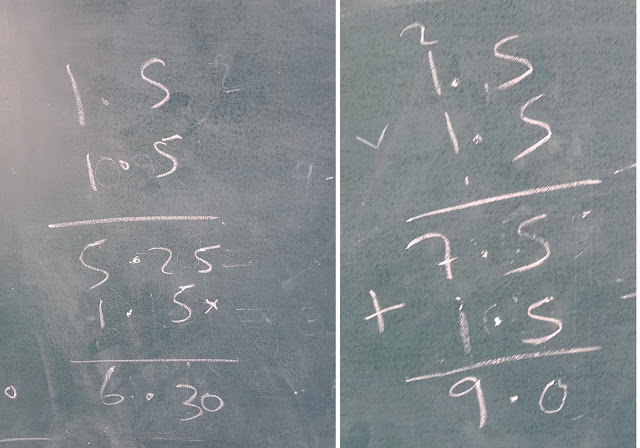 1.5
1.5
5.25
1.5x
6.30
2
1.5
1.5
7.5
+ 1.5
9.0